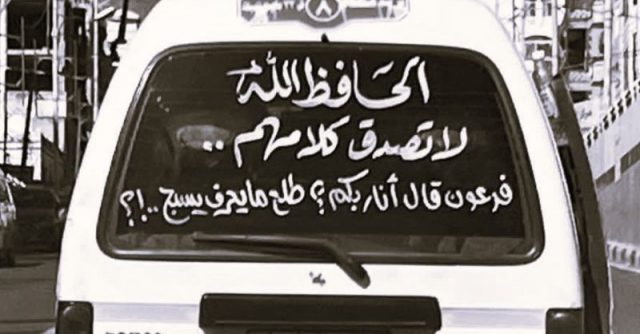 ٨
الحافظ الله
لا تصدق كلامهم ..
فرعون قال أنا ربكم ؟ طلع ما يعرف يسبح ..!؟